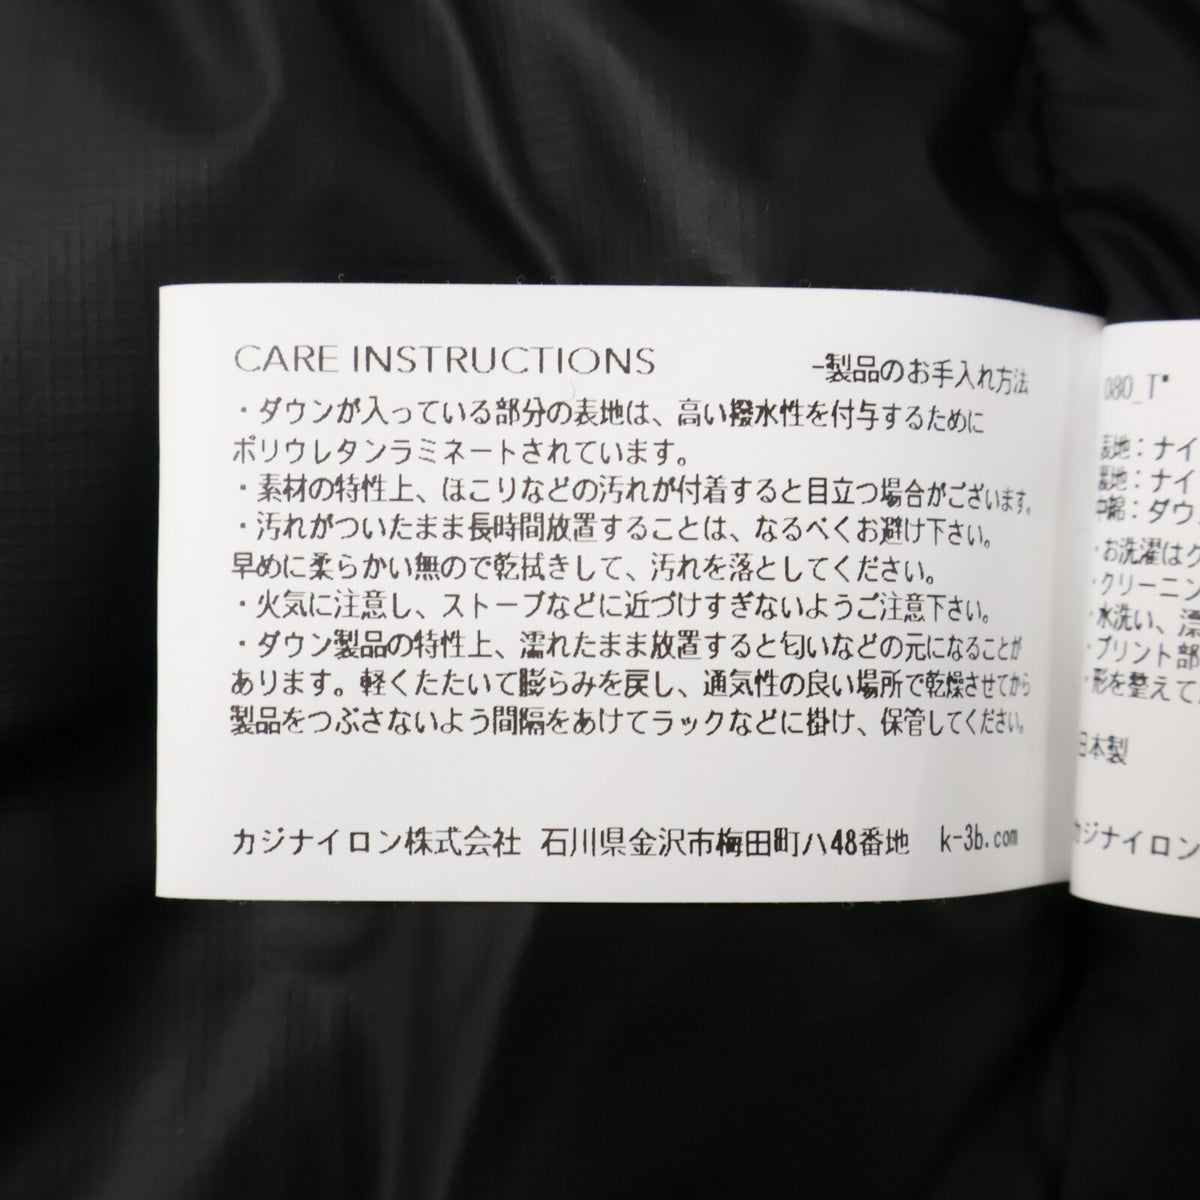 CARE INSTRUCTIONS -製品のお手入れ方法
・ダウンが入っている部分の表地は、高い撥水性を付与するために
ポリウレタンラミネートされています。
・素材の特性上、ほこりなどの汚れが付着すると目立つ場合がございます。
・汚れがついたまま長時間放置することは、なるべくお避け下さい。
早めに柔らかい無ので乾拭きして、汚れを落としてください。
・火気に注意し、ストーブなどに近づけすぎないようご注意下さい。
・ダウン製品の特性上、濡れたまま放置すると匂いなどの元になることが
あります。軽くたたいて膨らみを戻し、通気性の良い場所で乾燥させてから
製品をつぶさないよう間隔をあけてラックなどに掛け、保管してください。
カジナイロン株式会社 石川県金沢市梅田町ハ48番地 k-3b.com
080_T*
表地：ナイ
裏地：ナイ
中綿：ダウ
・お洗濯はク
・クリーニン
・水洗い、漂
・プリント部
・形を整えて
日本製
カジナイロン